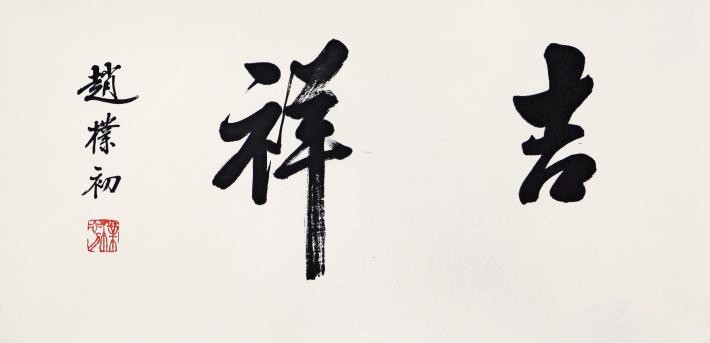 吉祥
趙樸初